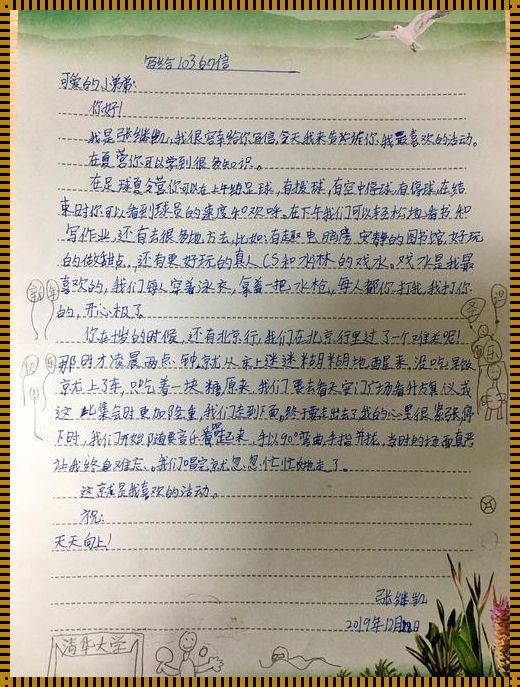 写给103的信
可爱的小弟弟:
你好!
我是张继凯,我很容幸给你写信,今天我来告诉你,我最喜欢的活动。
在夏营你可以学到很多知识。
在足球夏令营你可以在上午踢足球,有拔球,有空中停球,有停球,在结
束时你可以看到球员的速度和欢呼,在下午我们可以轻松地看书和
写作业,还有去很多地方去,比如:有趣电脑房 安静的图书馆,好玩
的做甜点,还有更好玩的真人CS和水林的戏水。戏水是我最
喜欢的,我们每人穿着泳衣,拿着一把水枪,每人都你打我,我打你
的,开心极了
你在 岁的时候,还有北京行,我们在北京行里过了一个难关呢!
那时才凌晨两点钟,就从床上迷迷糊糊地醒来,没吃早饭
就上了车,只吃着一块糖,原来,我们要去看天安门广场看升旗仪式
这 集会时更加隆重,我们走到下面,终于要走出去了,我的心里很紧张,停
下时,我们开始 要 起来,手以90°弯曲,手指并拢,当时的场面真是
让我终身难忘。我们唱完就忽忽忙忙地走了。
这就是我喜欢的活动。
祝:
天天向上!
张继凯
2019年12月 日
清华大学